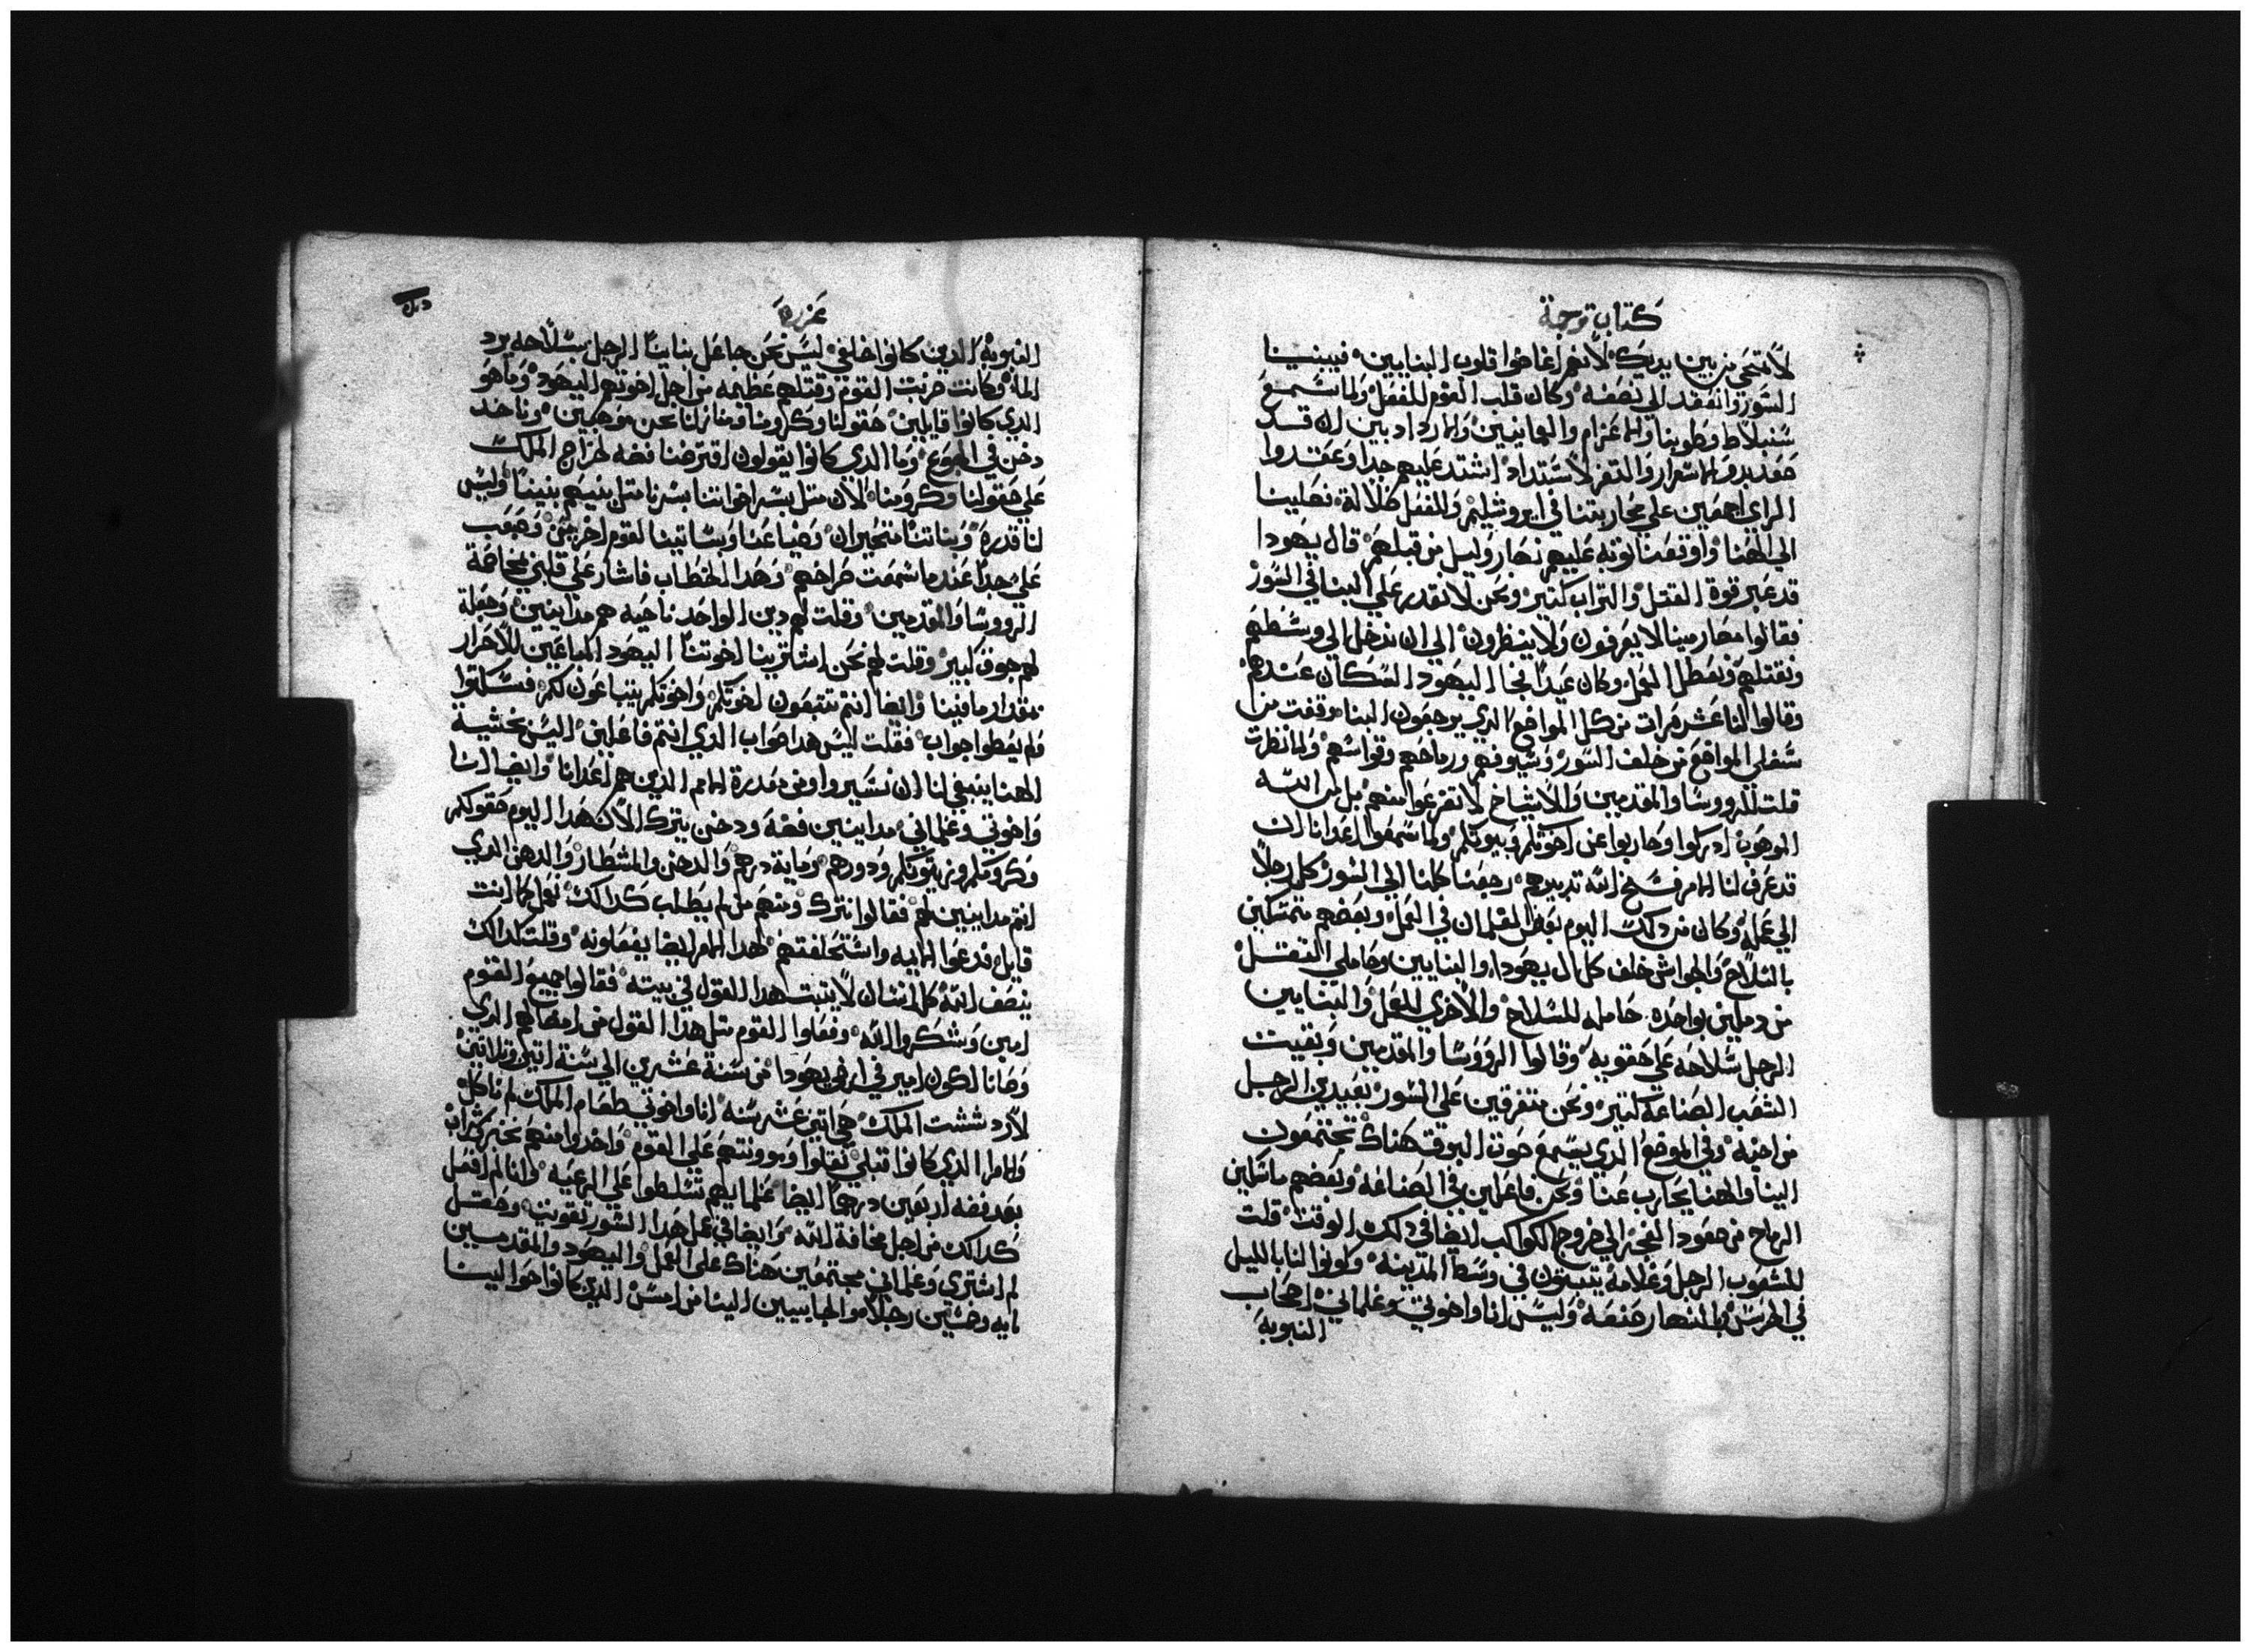 كتاب ترجمة
لا تمتحي من بين يديك لانهم اغاضوا قلوب البنايين فيبنينا
السور وانعقد الي نصفه وكان قلب القوم للعمل ولما سمع
سنبلاط وطوبيا والاعزام والعمانيين والازداديين ان قد
صعد برو الاسوار والثغر لاستداد اشتد عليهم جدا وعقدوا
الراي اجمعين علي محاربتنا في ايروشليم والعمل ضلالة فصلينا
الي الهنا واوقفنا نوبه عليهم نهار وليل من قبلهم قال يهودا
قد عبر قوة القتل والتراب كتير ونحن لا نقدر علي البنا في السور
فقالوا مصارمينا لا يعرفون ولا ينظرون الي ان ندخل الي وسطهم
ونقتلهم ونعطل العمل وكان عندا نجا اليهود السكان عندهم
وقالوا لنا عشر مرات من كل المواضع الدي يرجعون البنا موقفت من
سفلي المواضع من خلف السور وسيوفهم ورماحهم وقواسهم ولما نظرت
قلت للرووسا والمقدمين والاشياخ لا تفزعوا منهم بل من الله
الموهوب ادكروا وحاربوا عن اخوتكم وبيوتكم ولما سمعوا اعدانا ان
قد عرف لنا الامر فسخ الله تدبيرهم رجعنا كلنا الي السور كل رجلا
الي عمله وكان من دلك اليوم بعض الغلمان في العمل وبعضهم متمسكين
بالسلاح والجواشن خلف كل ال يهودا والبنايين وحاملي التقتل
من دملين بواحده حامله للسلاح والاخري للعمل والبنايين
الرجل سلاحه علي حقويه وقالوا الرووسا والمقدمين وبقيت
الشعب الصناعة كتير ونحن متفرقين علي السور بعيدين الرجل
من اخيه وفي الموضع الدي يسمع صوت البوق هناك تجتمعون
الينا والهنا يحارب عنا ونحن فاعلين في الصناعه وبعضهم ماسكين
الرماح من صعود الفجر الي خروج الكواكب ايضا في دلك الوقت قلت
للشعوب الرجل وغلامه يبيتون في وسط المدينه وكونوا لنا بالليل
في الحرس وبالنهار صنعه وليس انا واخوتي وغلماني اصحاب
النوبه
عزره
النوبه الدين كانوا خلفي ليس نحن جاعل ينا ينا الرجل بسلاحه يرد
الما وكانت حزنت القوم وقتلهم عظيمه من اجل اخوتهم اليهود وما هو
الدي كانوا قايلين حقولنا وكرومنا ومنازلنا نحن موهبين وناخد
دخن في الجوع وما الدي كانوا يقولون اقترضنا فضه لخراج الملك
علي حقولنا وكرومنا الان متل بشر اخواتنا بشرنا متل بنيهم بنينا وليس
لنا قدره وبناتنا متحيران وضياعنا وبساتينا لقوم اخر وصعب
علي جدا عندما سمعت صراخهم وهدا الخطاب فاشار علي قلبي مخاصمة
الرووسا والمقدمين وقلت لهم دين الواحد ناحيه هم مداينين وجعلة
لهم جوق كبير وقلت لهم نحن اشترينا اخوتنا اليهود المباعين للاحرار
بمقدار ما فينا وايضا انتم تتبعون اخوتكم واخوتكم يتباعون لكم فسكتوا
ولم يعطوا جواب فقلت ليس هدا صواب الدي انتم فاعلين اليس بخشية
الهنا ينبغي لنا ان نسير ومن مقدرة الامم الدين هم اعدانا وايضا انا
واخوتي وغلماني مداينين فضه ودخن يترك الان هدا اليوم حقولكم
وكرومكم وزيتونكم ودورهم وماية درهم والدخن والمسطار والدهن الدي
انتم مداينين لهم فقالوا نترك ومنهم لم يطلب كدلك نعمل كما انت
قايل فدعوا الايمه واستحلفتهم لهدا الامر ايضا يفعلونه وقلت كدلك
ينصف الله كل انسان لا يتبت هدا القول في بيته فقالوا جميع القوم
امين وشكروا الله وفعلوا القوم متل هدا القول من امضالهم الدي
وصانا اكون امير في ارض يهودا من سنة عشرين الي سنة اتنين وتلاتين
لاردششت الملك هي اتني عشر سنه انا واخوتي طعام الملك لم ناكل
والامرا الدي كانوا قبلي تقلوا ومووتهم علي القوم واخدوا منهم بخبز وشراب
بعد فضه اربعين درهما ايضا غلمانهم تسلطوا علي الرعيه وانا لم افعل
كدلك من اجل مخافة الله وايضا في عمل هدا السور تقويت وحقل
لم اشتري وغلماني مجتمعين هناك علي العمل واليهود والمقدمين
مايه وخمسين رجلا موالجاييين الينا من امس الدين كانوا حوالينا